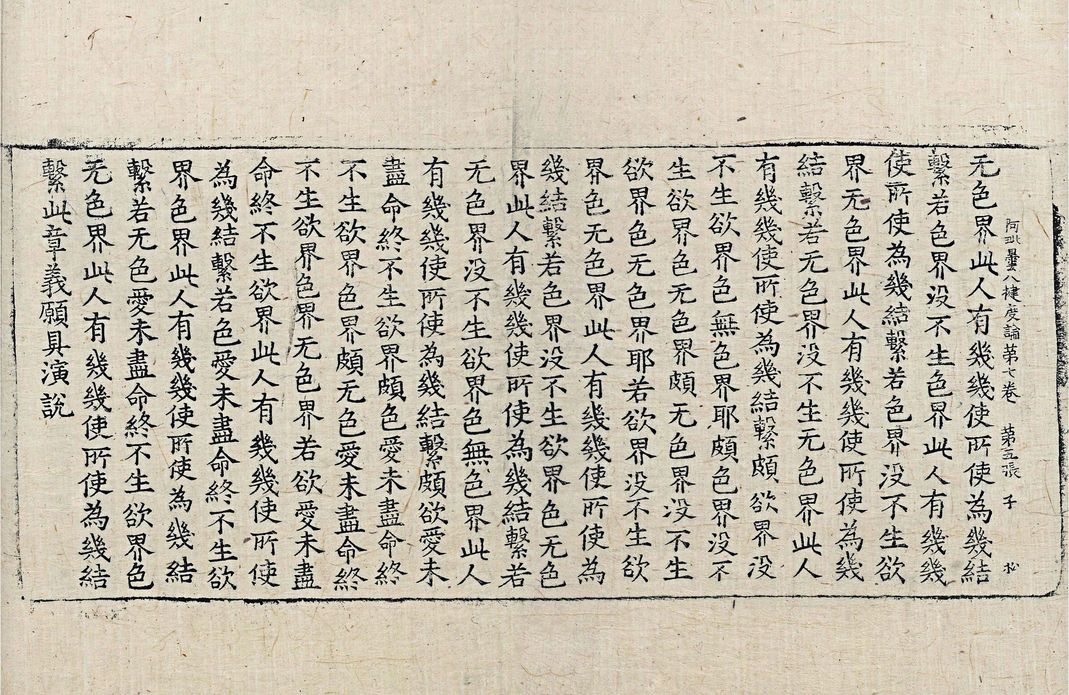 阿毗曇八揵度論第七卷 第五張 子
无色界此人有幾幾使所使為幾結
繫若色界没不生色界此人有幾幾
使所使為幾結繫若色界没不生欲
界无色界此人有幾幾使所使為幾
結繫若无色界没不生无色界此人
有幾幾使所使為幾結繫頗欲界没
不生欲界色無色界耶頗色界没不
生欲界色无色界頗无色界没不生
欲界色无色界耶若欲界没不生欲
界色无色界此人有幾幾使所使為
幾結繫若色界没不生欲界色无色
界此人有幾幾使所使為幾結繫若
无色界没不生欲界色無色界此人
有幾幾使所使為幾結繫頗欲愛未
盡命終不生欲界頗色愛未盡命終
不生欲界色界頗无色愛未盡命終
不生欲界色界无色界若欲愛未盡
命終不生欲界此人有幾幾使所使
為幾結繫若色愛未盡命終不生欲
界色界此人有幾幾使所使為幾結
繫若无色愛未盡命終不生欲界色
无色界此人有幾幾使所使為幾結
繫此章義願具演說